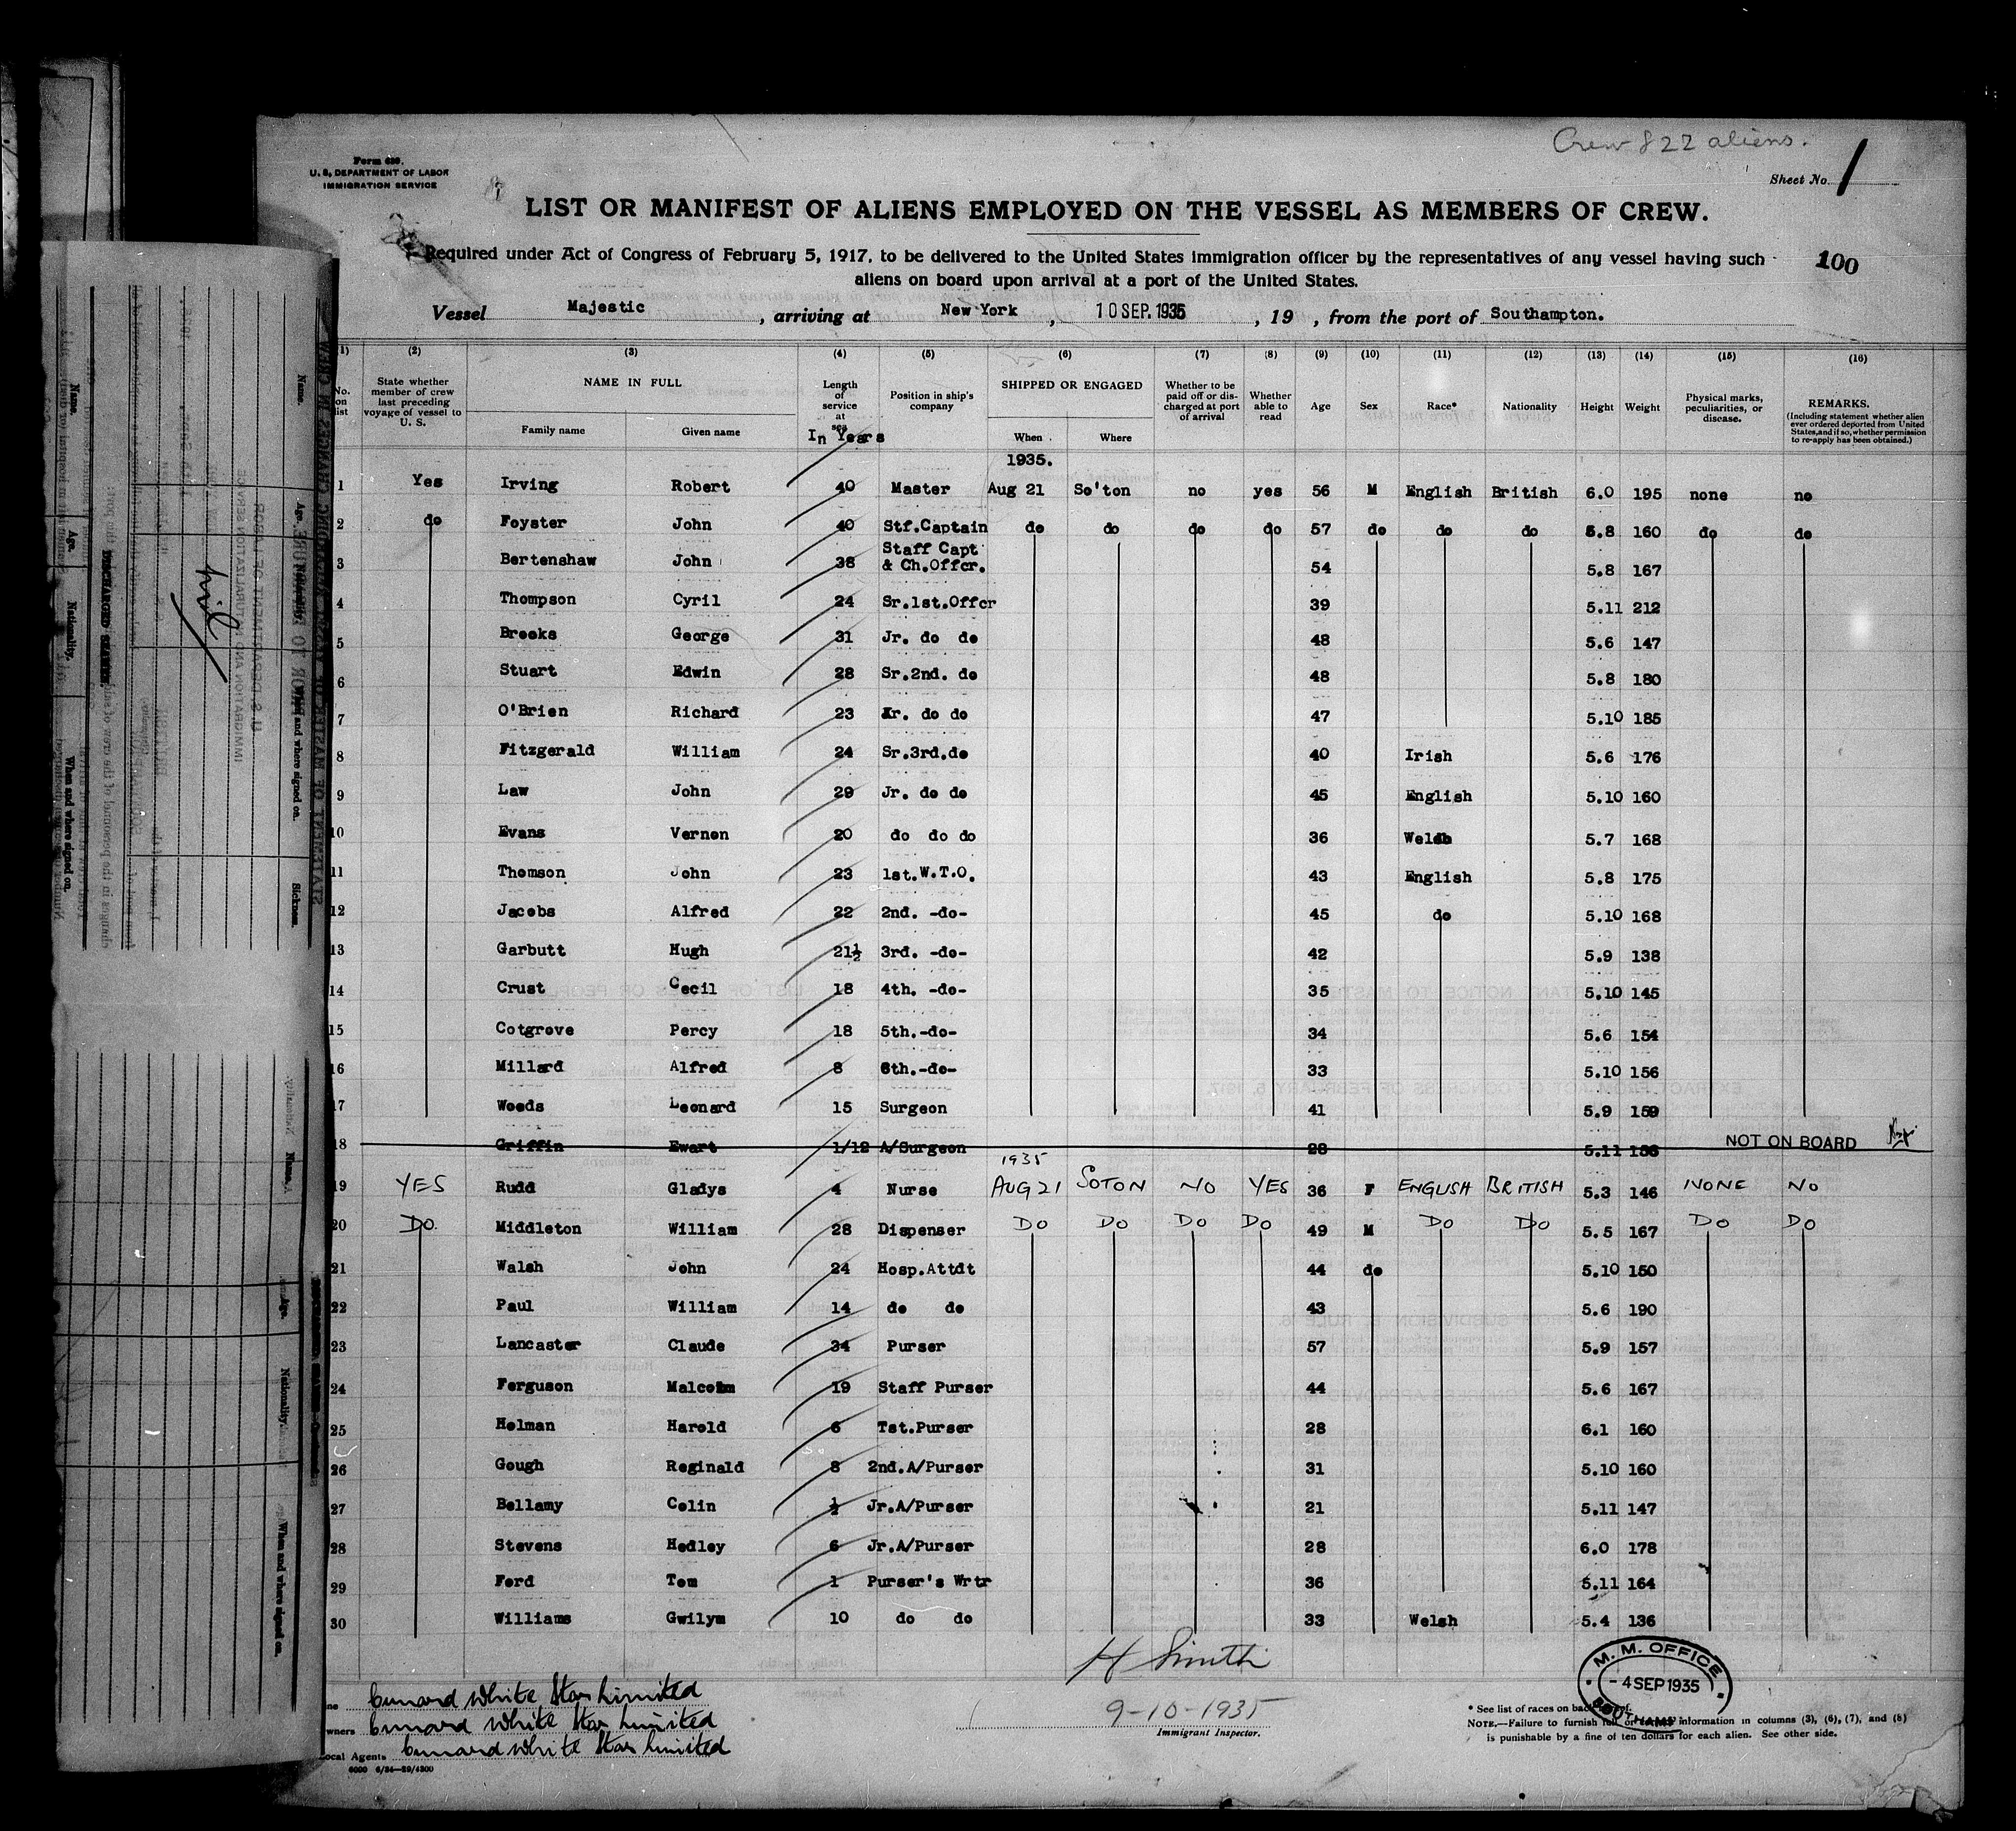 Crew 822 aliens.
Form 680.
U. S. DEPARTMENT OF LABOR
IMMIGRATION SERVICE
Sheet No. 1
LIST OR MANIFEST OF ALIENS EMPLOYED ON THE VESSEL AS MEMBERS OF CREW.
Required under Act of Congress of February 5, 1917, to be delivered to the United States immigration officer by the representatives of any vessel having such
aliens on board upon arrival at a port of the United States.
100
Vessel Majestic, arriving at New York, 10 SEP. 1935, 19 , from the port of Southampton.
(1) (2) (3) (4) (5) (6) (7) (8) (9) (10) (11) (12) (13) (14) (15) (16)
No. on list State whether member of crew last preceding voyage of vessel to U. S. NAME IN FULL Family name Given name Length of service at sea In Years Position in ship's company SHIPPED OR ENGAGED When Where Whether to be paid off or discharged at port of arrival Whether able to read Age Sex Race* Nationality Height Weight Physical marks, peculiarities, or disease. REMARKS. (Including statement whether alien ever ordered deported from United States, and if so, whether permission to re-apply has been obtained.)
1935.
1 Yes Irving Robert 40 Master Aug 21 So'ton no yes 56 M English British 6.0 195 none no
2 do Foyster John 40 Stf.Captain do do do do 57 do do do 5.8 160 do do
3 Bertenshaw John 38 Staff Capt & Ch.Offcr. 54 5.8 167
4 Thompson Cyril 24 Sr.1st.Offcr 39 5.11 212
5 Brooks George 31 Jr. do do 48 5.6 147
6 Stuart Edwin 28 Sr.2nd. do 48 5.8 180
7 O'Brien Richard 23 Jr. do do 47 5.10 185
8 Fitzgerald William 24 Sr.3rd.do 40 Irish 5.6 176
9 Law John 29 Jr. do do 45 English 5.10 160
10 Evans Vernon 20 do do do 36 Welsh 5.7 168
11 Thomson John 23 1st.W.T.O. 43 English 5.8 175
12 Jacobs Alfred 22 2nd. -do- 45 do 5.10 168
13 Garbutt Hugh 21½ 3rd. -do- 42 5.9 138
14 Crust Cecil 18 4th. -do- 35 5.10 145
15 Cotgrove Percy 18 5th.-do- 34 5.6 154
16 Millard Alfred 8 6th.-do- 33 5.10 156
17 Woods Leonard 15 Surgeon 41 5.9 159
18 Griffin Ewart 1/12 A/Surgeon 28 5.11 NOT ON BOARD
1935
19 YES Rudd Gladys 4 Nurse AUG 21 SOTON NO YES 36 F ENGLISH BRITISH 5.3 146 NONE NO
20 DO Middleton William 28 Dispenser DO DO DO DO 49 M DO DO 5.5 167 DO DO
21 Walsh John 24 Hosp.Attdt 44 do 5.10 150
22 Paul William 14 do do 43 5.6 190
23 Lancaster Claude 34 Purser 57 5.9 157
24 Ferguson Malcolm 19 Staff Purser 44 5.6 167
25 Holman Harold 6 Tst.Purser 28 6.1 160
26 Gough Reginald 8 2nd.A/Purser 31 5.10 160
27 Bellamy Colin ½ Jr.A/Purser 21 5.11 147
28 Stevens Hedley 6 Jr.A/Purser 28 6.0 178
29 Ford Tom 1 Purser's Wrtr 36 5.11 164
30 Williams Gwilym 10 do do 33 Welsh 5.4 136
H Smith
9-10-1935
Immigrant Inspector.
Cunard White Star Limited
Owners Cunard White Star Limited
Local Agents Cunard White Star Limited
6000 6/34—29/4300
M. M. OFFICE
- 4 SEP 1935
* See list of races on back
NOTE.—Failure to furnish full information in columns (3), (6), (7), and (8)
is punishable by a fine of ten dollars for each alien. See other side.